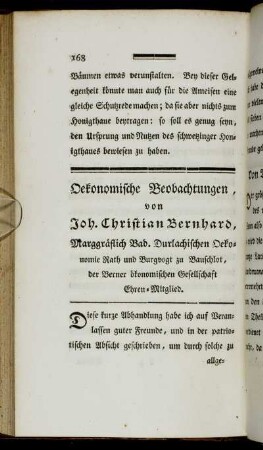 168
Bäumen etwas verunstalten. Bey dieser Gel-
egenheit könnte man auch für die Ameisen eine
gleiche Schutzrede machen; da sie aber nichts zum
Honigthaue beytragen: so soll es genug seyn,
den Ursprung und Nutzen des schwetzinger Hon-
igthaues bewiesen zu haben.
Oekonomische Beobachtungen,
von
Joh. Christian Bernhard,
Marggräflich Bad. Durlachischen Oeko-
nomie Rath und Burgvogt zu Bauschlot,
der Berner ökonomischen Gesellschaft
Ehren-Mitglied.
Diese kurze Abhandlung habe ich auf Veran-
lassen guter Freunde, und in der patrio-
tischen Absicht geschrieben, um durch solche zu
allge-